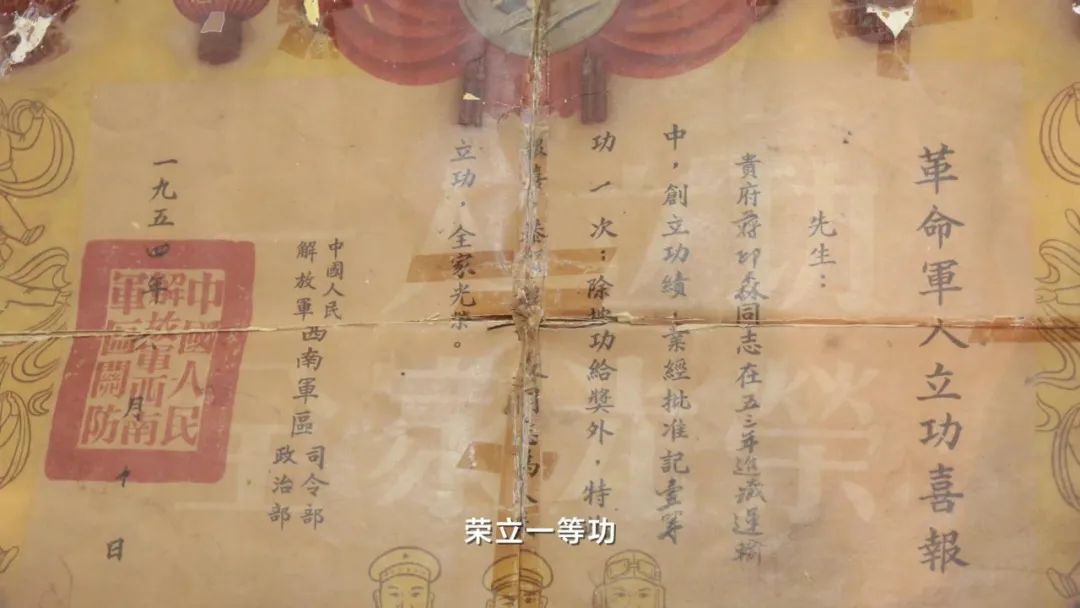 革命軍人立功喜報
先生：
貴府蔣印森同志在五三年進藏運輸
中，創立功績，業經批准記壹等
功一次：除按功給獎外，特
報喜
立功，全家光榮。
中國人民
解放軍西南軍區司令部
政治部
一九五四年 月十日
中國人民
解放軍西南
軍區關防
光榮
荣立一等功